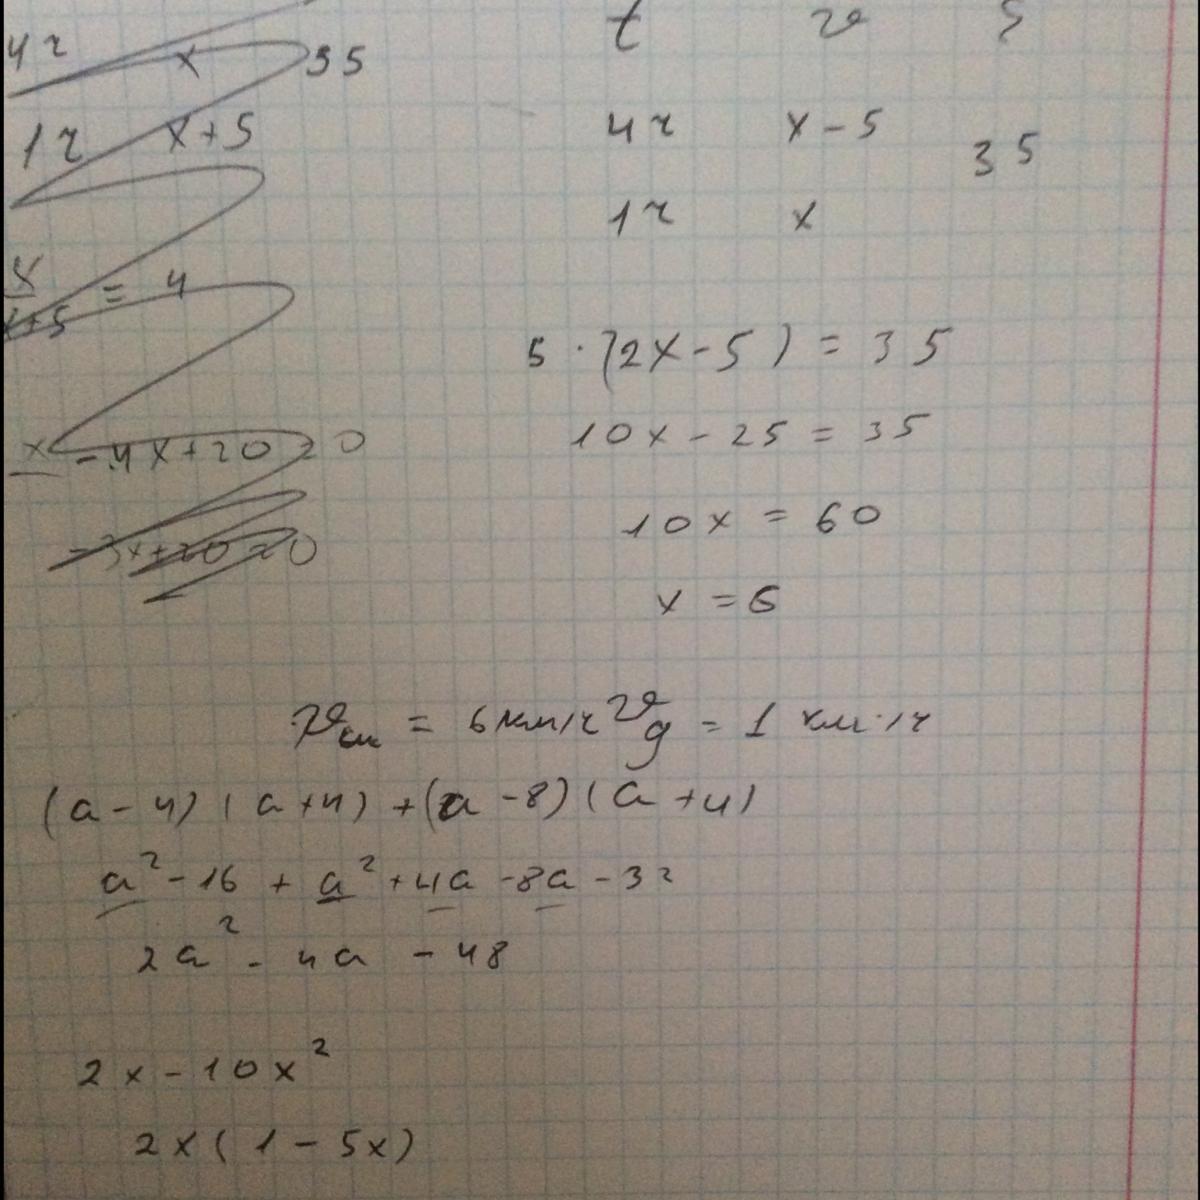 t v S
4ч x 35
4ч x - 5
1ч x + 5
35
1ч x
x/x+5 = 4
5 · (2x - 5) = 35
10x - 25 = 35
x - 4x + 20 = 0
10x = 60
- 3x + 20 = 0
x = 6
vсм = 6 км/ч vд = 1 км/ч
(a - 4) (a + 4) + (a - 8) (a + 4)
a² - 16 + a² + 4a - 8a - 32
2a² - 4a - 48
2x - 10x²
2x (1 - 5x)